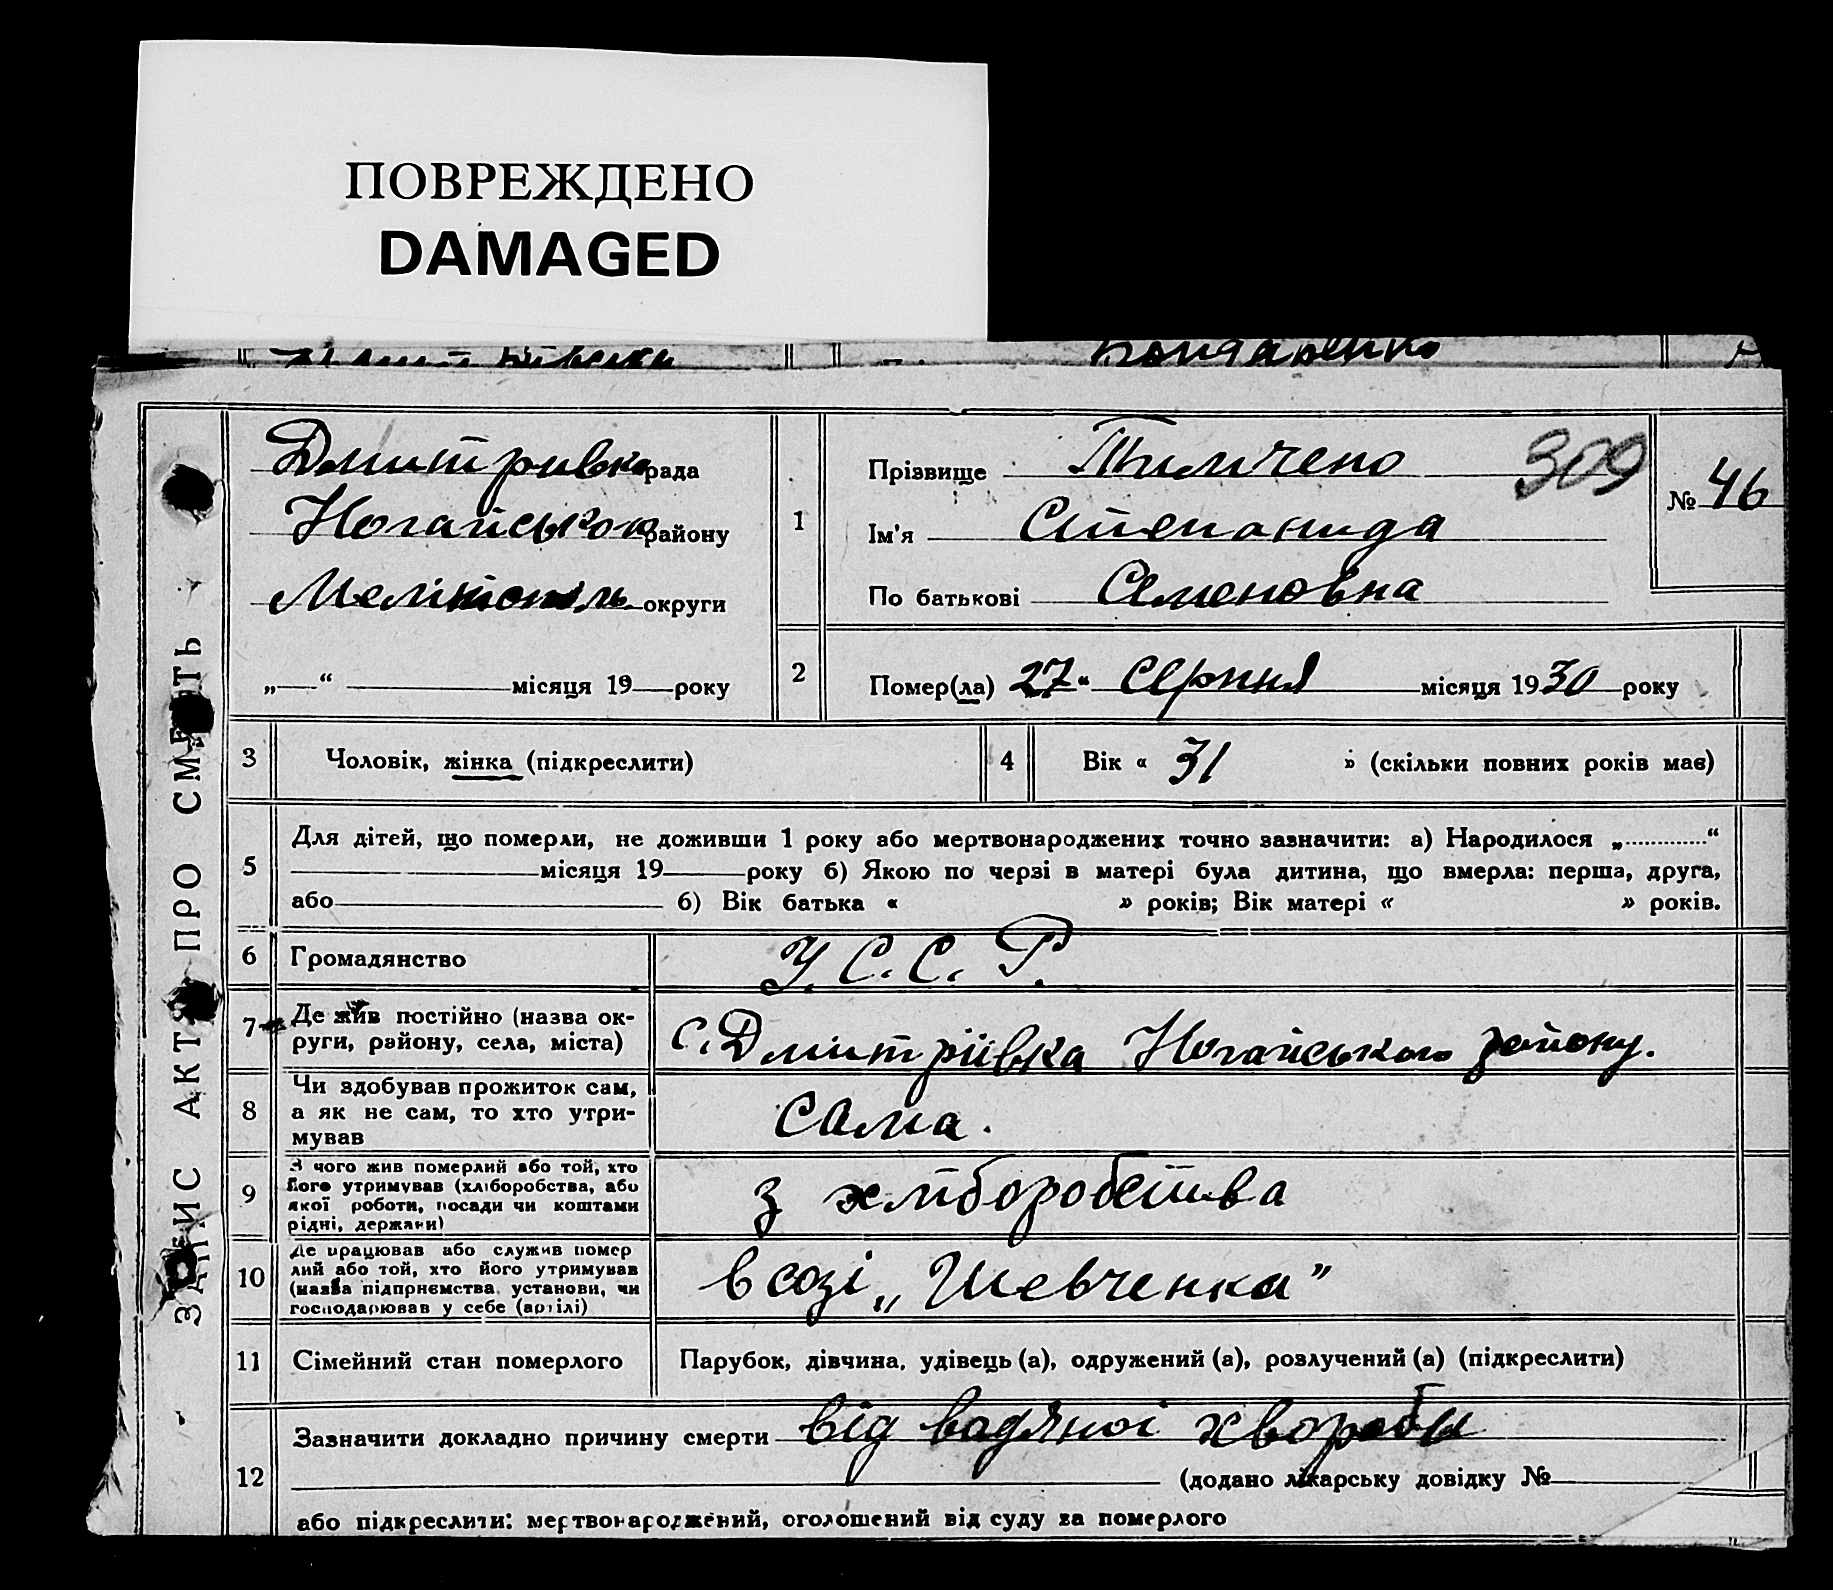 ПОВРЕЖДЕНО
DAMAGED
Бондаренко
ЗАПИС АКТУ ПРО СМЕРТЬ
Дмитривка рада
Ногайського району
Мелітополь округи
„—“ місяця 19 року
1
Прізвище
309
Ім'я Степанида
По батькові Семеновна
№ 46
2
Помер(ла) 27 “ серпня місяця 1930 року
3
Чоловік, жінка (підкреслити)
4
Вік « 31 » (скільки повних років має)
5
Для дітей, що померли, не доживши 1 року або мертвонароджених точно зазначити: а) Народилося „............“
місяця 19 року б) Якою по черзі в матері була дитина, що вмерла: перша, друга,
або б) Вік батька « » років; Вік матері « » років.
6
Громадянство
У. С. С. Р.
7
Де жив постійно (назва ок-
руги, району, села, міста)
с. Дмитріївка Ногайського району.
8
Чи здобував прожиток сам,
а як не сам, то хто утри-
мував
сама.
9
З чого жив померлий або той, хто
його утримував (хліборобства, або
якої роботи, посади чи коштами
рідні, держави)
з хліборобства
10
Де працював або служив помер
лий або той, хто його утримував
(назва підприємства, установи, чи
господарював у себе (артілі)
в созі „Шевченка”
11
Сімейний стан померлого
Парубок, дівчина, удівець (а), одружений (а), розлучений (а) (підкреслити)
12
Зазначити докладно причину смерти від вадяної хвороби
(додано лікарську довідку №
або підкреслити: мертвонароджений, оголошений від суду за померлого